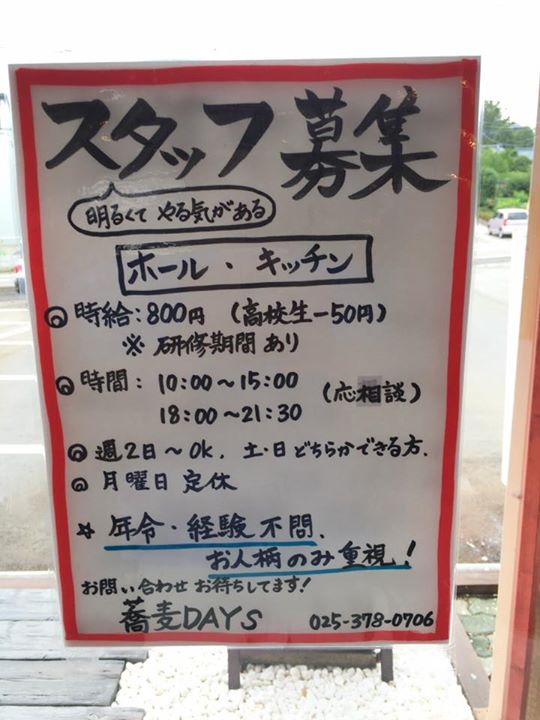 スタッフ募集
明るくて やる気がある
ホール・キッチン
◎ 時給:800円 (高校生-50円)
※ 研修期間 あり
◎ 時間: 10:00~15:00
18:00~21:30 (応相談)
◎ 週2日~Ok. 土・日どちらかできる方.
◎ 月曜日 定休
☆ 年令・経験不問、
お人柄のみ重視!
お問い合わせ お待ちしてます!
蕎麦DAYs 025-378-0706